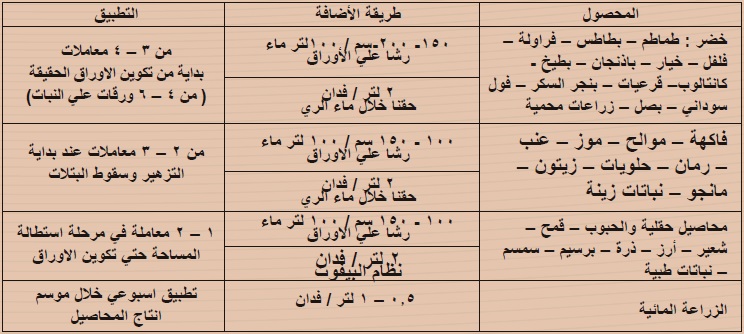 المحصول
طريقة الأضافة
التطبيق
خضر : طماطم – بطاطس – فراولة –
فلفل – خيار – باذنجان – بطيخ -
كانتالوب- قرعيات – بنجر السكر – فول
سوداني – بصل – زراعات محمية
١٥٠- ٢٠٠-سم / ١٠٠لتر ماء
رشا علي الأوراق
٢ لتر / فدان
حقنا خلال ماء الري
من ٣ – ٤ معاملات
بداية من تكوين الاوراق الحقيقة
( من ٤ – ٦ ورقات علي النبات)
فاكهة – موالح – موز – عنب
– رمان – حلويات – زيتون –
مانجو – نباتات زينة
١٠٠ - ١٥٠ سم / ١٠٠ لتر ماء
رشا علي الاوراق
٢ لتر / فدان
حقنا خلال ماء الري
من ٢ – ٣ معاملات عند بداية
التزهير وسقوط البتلات
محاصيل حقلية والحبوب – قمح –
شعير – أرز – ذرة – برسيم – سمسم
– نباتات طبية
١٠٠ - ١٥٠ سم / ١٠٠ لتر ماء
رشا علي الاوراق
٢ لتر / فدان
نظام البيفوت
١ – ٢ معاملة في مرحلة استطالة
المساحة حتي تكوين الاوراق
الزراعة المائية
٠,٥ – ١ لتر / فدان
تطبيق اسبوعي خلال موسم
انتاج المحاصيل